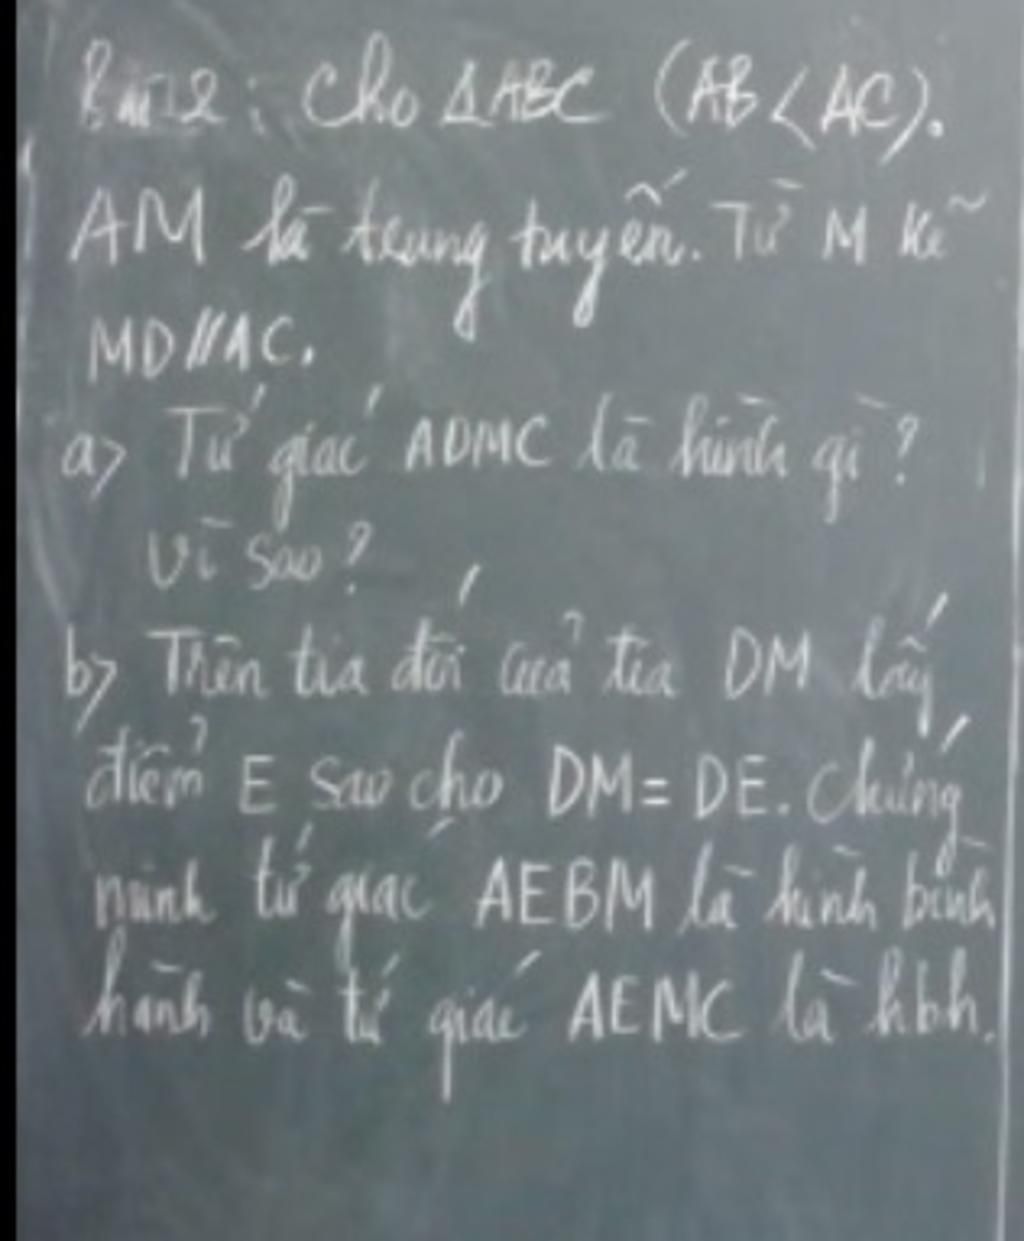 Bài 2: Cho ΔABC (AB < AC).
AM là trung tuyến. Từ M kẽ
MD//AC.
a> Tứ giác ADMC là hình gì?
Vì sao?
b> Trên tia đối của tia DM lấy
điểm E sao cho DM = DE. Chứng
minh tứ giác AEBM là hình bình
hành và tứ giác AEMC là hbh.